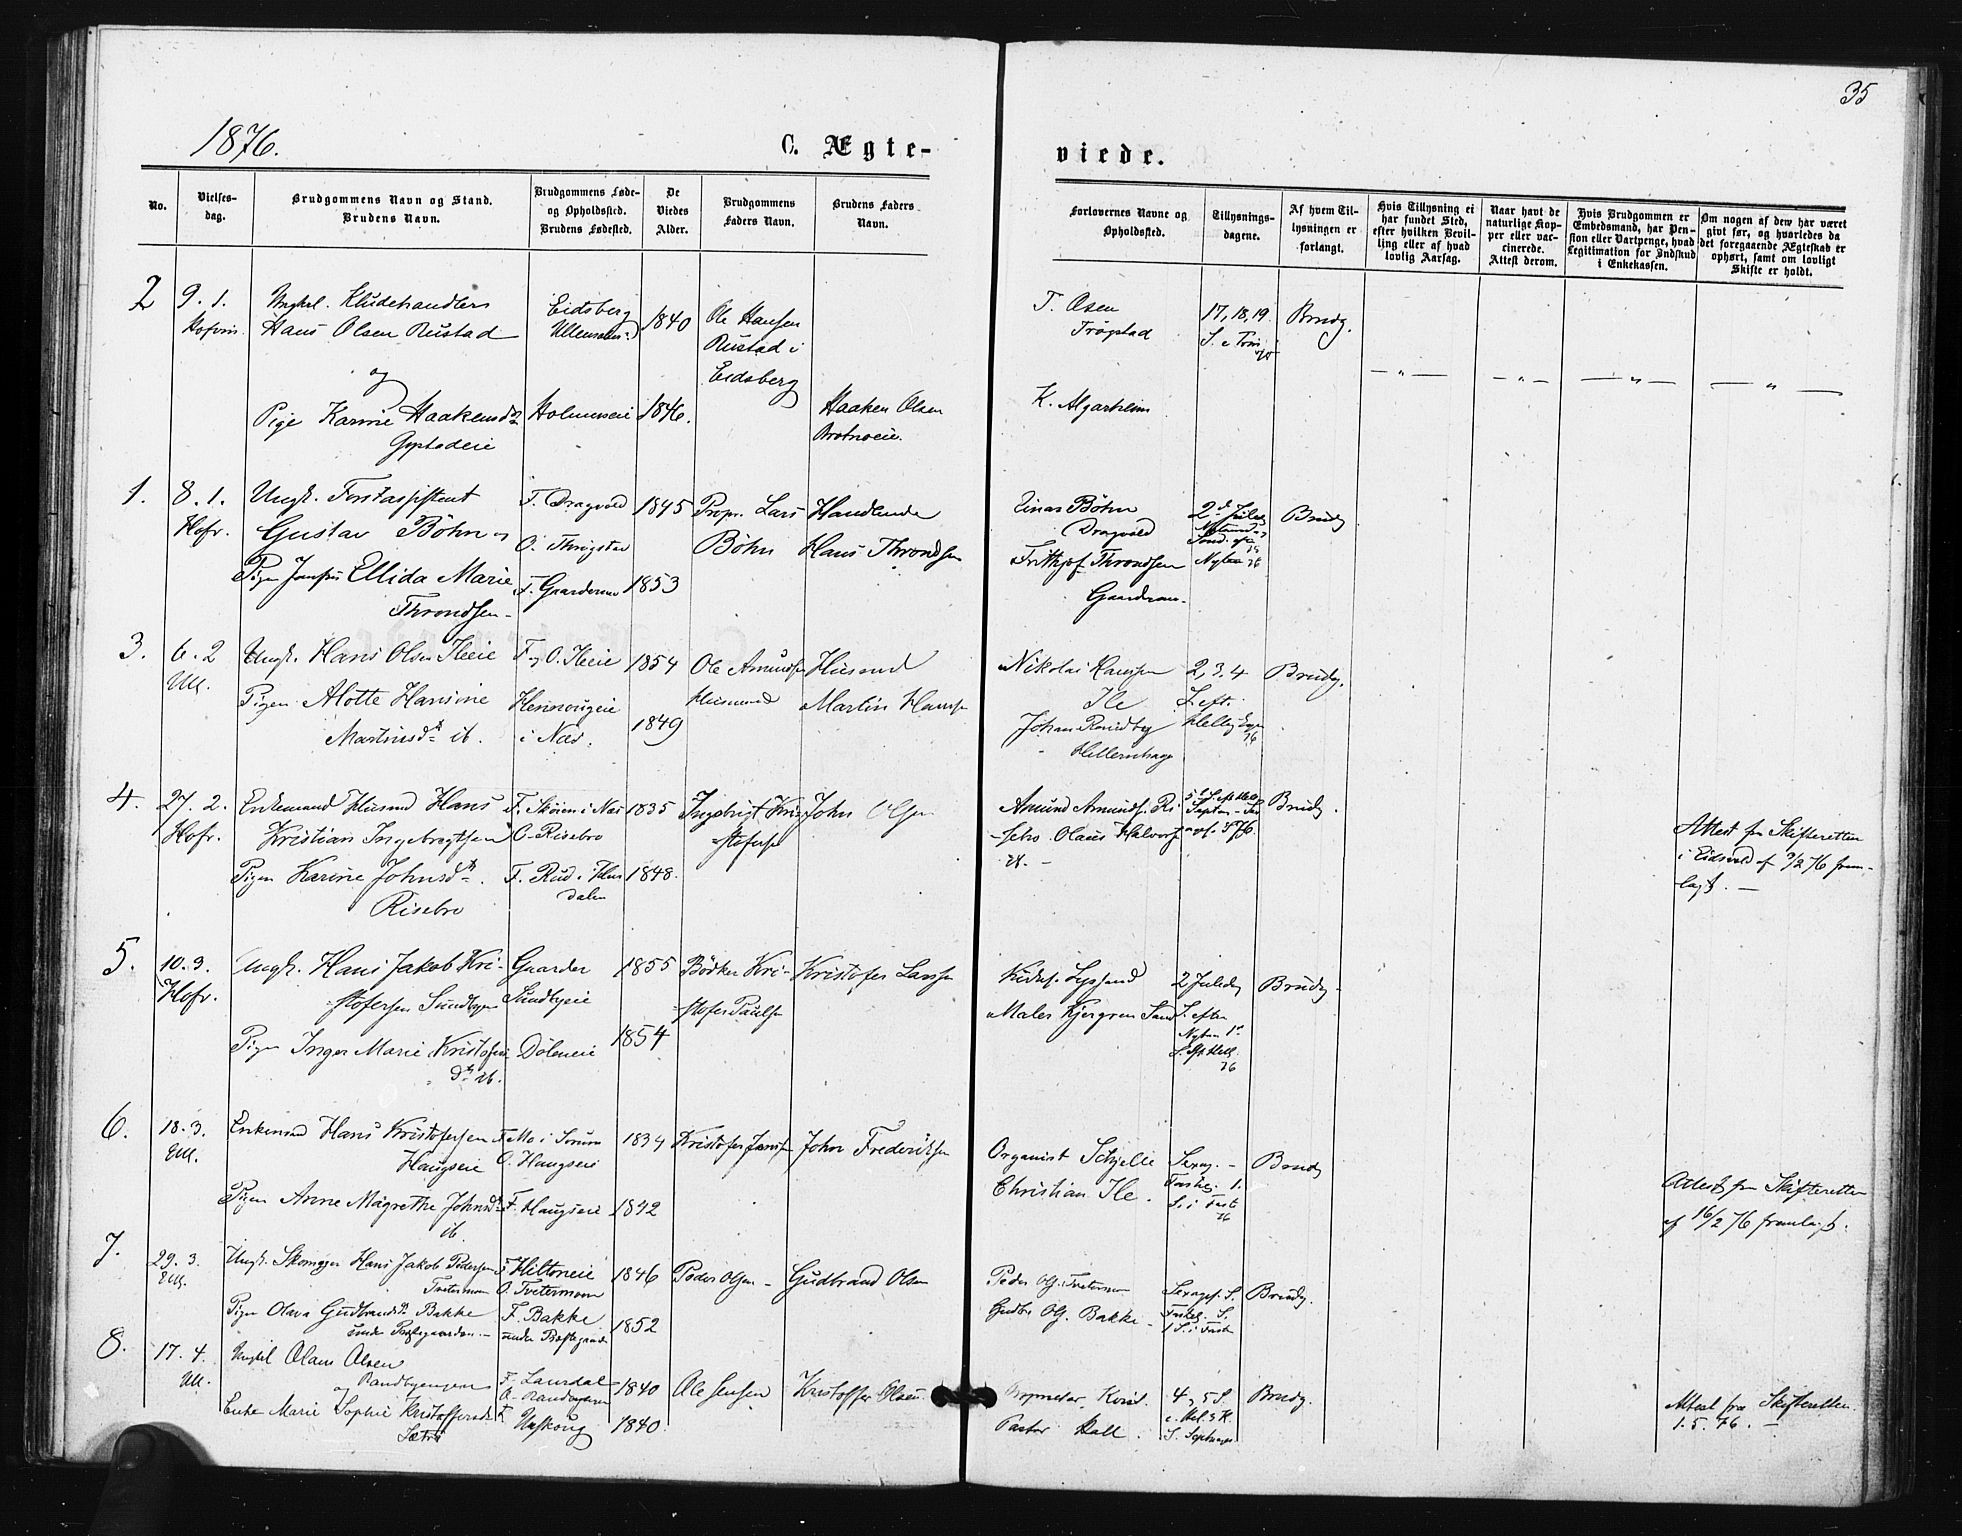 35
1876.
C. Ægte-
viede.
No.
Vielses-
dag.
Brudgommens Navn og Stand.
Brudens Navn.
Brudgommens Føde-
og Opholdssted.
Brudens Fødested.
De
Viedes
Alder.
Brudgommens
Faders Navn.
Brudens Faders
Navn.
Forlovernes Navne og
Opholdssted.
Tillysnings-
dagene.
Af hvem Til-
lysningen er
forlangt.
Hvis Tillysning ei
har fundet Sted,
efter hvilken Bevil-
ling eller af hvad
lovlig Aarsag.
Naar havt de
naturlige Kop-
per eller vac-
cinerede.
Attest derom.
Hvis Brudgommen er
Embedsmand, har Pen-
sion eller Vartpenge, hvad
Legitimation for Indskud
i Enkekassen.
Om nogen af dem har været
gift før, og hvorledes da
det foregaaende Ægteskab er
ophørt, samt om lovligt
Skifte er holdt.
2
9. 1.
Ungkl. Kludehandler
Hans Olsen Rustad
og
Pige Karine Haakensd.
Eidsberg
Holmseie
1840
1846.
Ole Hansen
Rustad i
Eidsberg
Haaken Olsen
T. Olsen
Trøgstad
K. Algarheim
17, 18, 19
Brudg.
1.
8. 1.
Hofv.
Ungk. Forstassistent
Gustav Böhn
Ellida Marie
Throndsen
F. Dragvold
O. Thrøgstad
F. Gaarderen
1845
1853
Propr. Lars
Böhn
Handlende
Hans Throndsen
Einar Böhn
Dragvold
Frithjof Throndsen
Brudg
3.
6. 2
Ull.
Ungk. Hans Olsen Ileie
Pigen Alotte Hansine
Martinsd. ib.
F. og O. Ileie
i Næs.
1854
1849
Ole Amundsen
Husmand
Husmd
Martin Hansen
Nikolai Hanssen
Ile
Johan Rundby
2, 3, 4
Brudg.
4.
27. 2.
Hofv.
Enkemand Husmd Hans
Kristian Ingebregtsen
Pigen Karine Johnsd.
Risebro
F. Skøien i Næs
O. Risebro
F. Rud i Hur
dalen
1835
1848.
Ingebrigt Kri-
stofersen
John Olsen
Amund Amunds. Ri
sebro Olaus Halvors.
ib. -
Brudg.
Attest fra Skifteretten
i Eidsvold af 3/2 76 frem-
lagt. -
5.
10. 3.
Hofv.
Ungk. Hans Jakob Kri-
stofersen Sundbyeie
Pigen Inger Marie Kristofers
dt. ib.
Gaarder
Sundbyeie
Døleneie
1855
1854
Bødker Kri-
stofer Paulsen
Kristofer Larssen
Maler Kjergren Sand
2 Juledg
S. efter
Nytaar 1ste
76
Brudg.
6.
18. 3.
Ull.
Enkemd Hans Kristofersen
Haugseie
Pigen Anne Magrethe Johnsd.
ib.
F. Mo i Sørum
O. Haugseie
F. Haugseie
1834
1842
Kristofer Jensen
John Frederiksen
Organist Schjelle
Christian Ile.
Brudg
Attest fra Skifteretten
af 16/2 76 fremlagt.
7.
29. 3.
Ull.
Ungk. Skomager Hans Jakob Pedersen
Tveitermoen
Pigen Olava Gudbrandsd. Bakke
under Prestegaarden. -
F. Hiltoneie
O. Tveitermoen
F. Bakke
under Prestegaarden
1846
1852
Peder Olsen -
Gudbrand Olsen
Peder Ols. Tveitermoen
Gudbr. Ols. Bakke -
Brudg.
8.
17. 4.
Ull.
Ungkl Olaus Olsen
og
Enke Marie Sophie Kristoffersd.
Sætre
F. Laurdal
1840
1840.
Ole Jensen
Kristoffer Olsen
Pastor Hall.
4, 5 S.
Brudg.
Attest fra Skifteretten
1. 5. 76. -